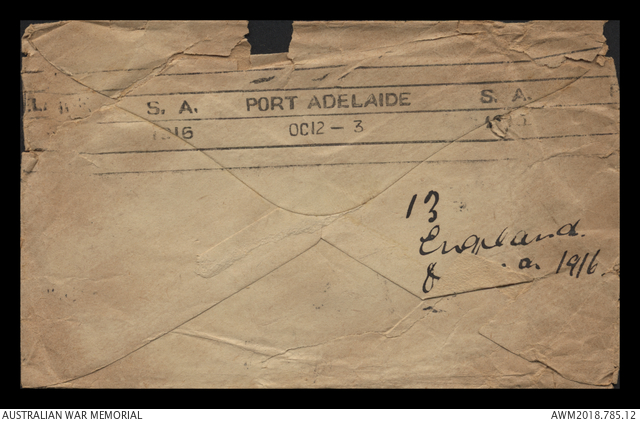 S. A. PORT ADELAIDE S. A.
1916 OC12 - 3
13
England.
8 a. 1916.
AUSTRALIAN WAR MEMORIAL
AWM2018.785.12